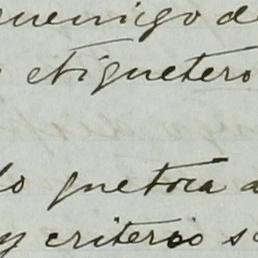 enemigo de
etiquetero
lo que toca a
y criterio s